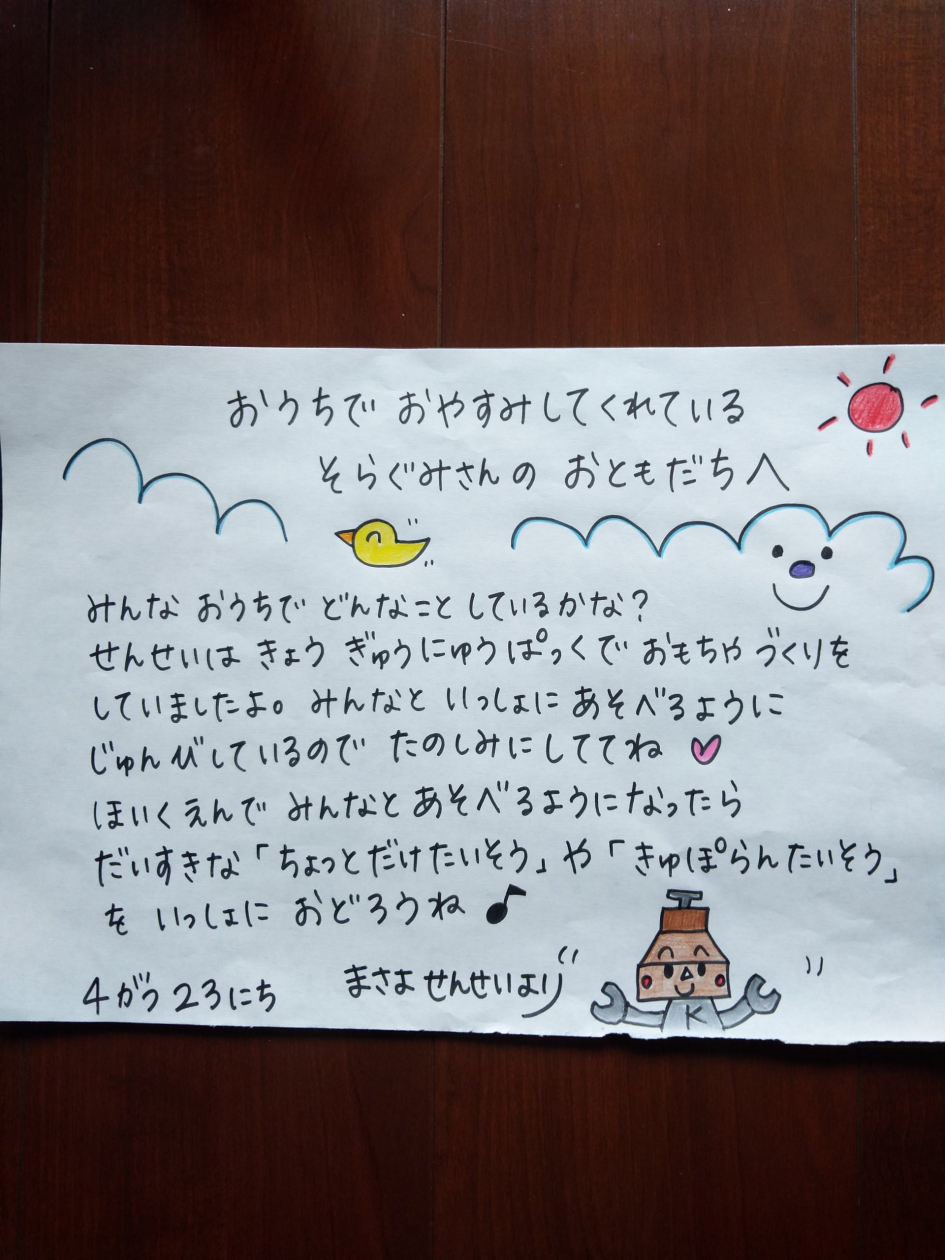 おうちで おやすみしてくれている
そらぐみさんの おともだちへ
みんな おうちで どんなこと しているかな?
せんせいは きょう ぎゅうにゅうぱっくで おもちゃ づくりを
していましたよ。 みんなと いっしょに あそべるように
じゅんびしているので たのしみにしててね
ほいくえんで みんなと あそべるようになったら
だいすきな「ちょっとだけたいそう」や「きゅぽらんたいそう」
を いっしょに おどろうね
4がつ 23にち まさよ せんせいより
K